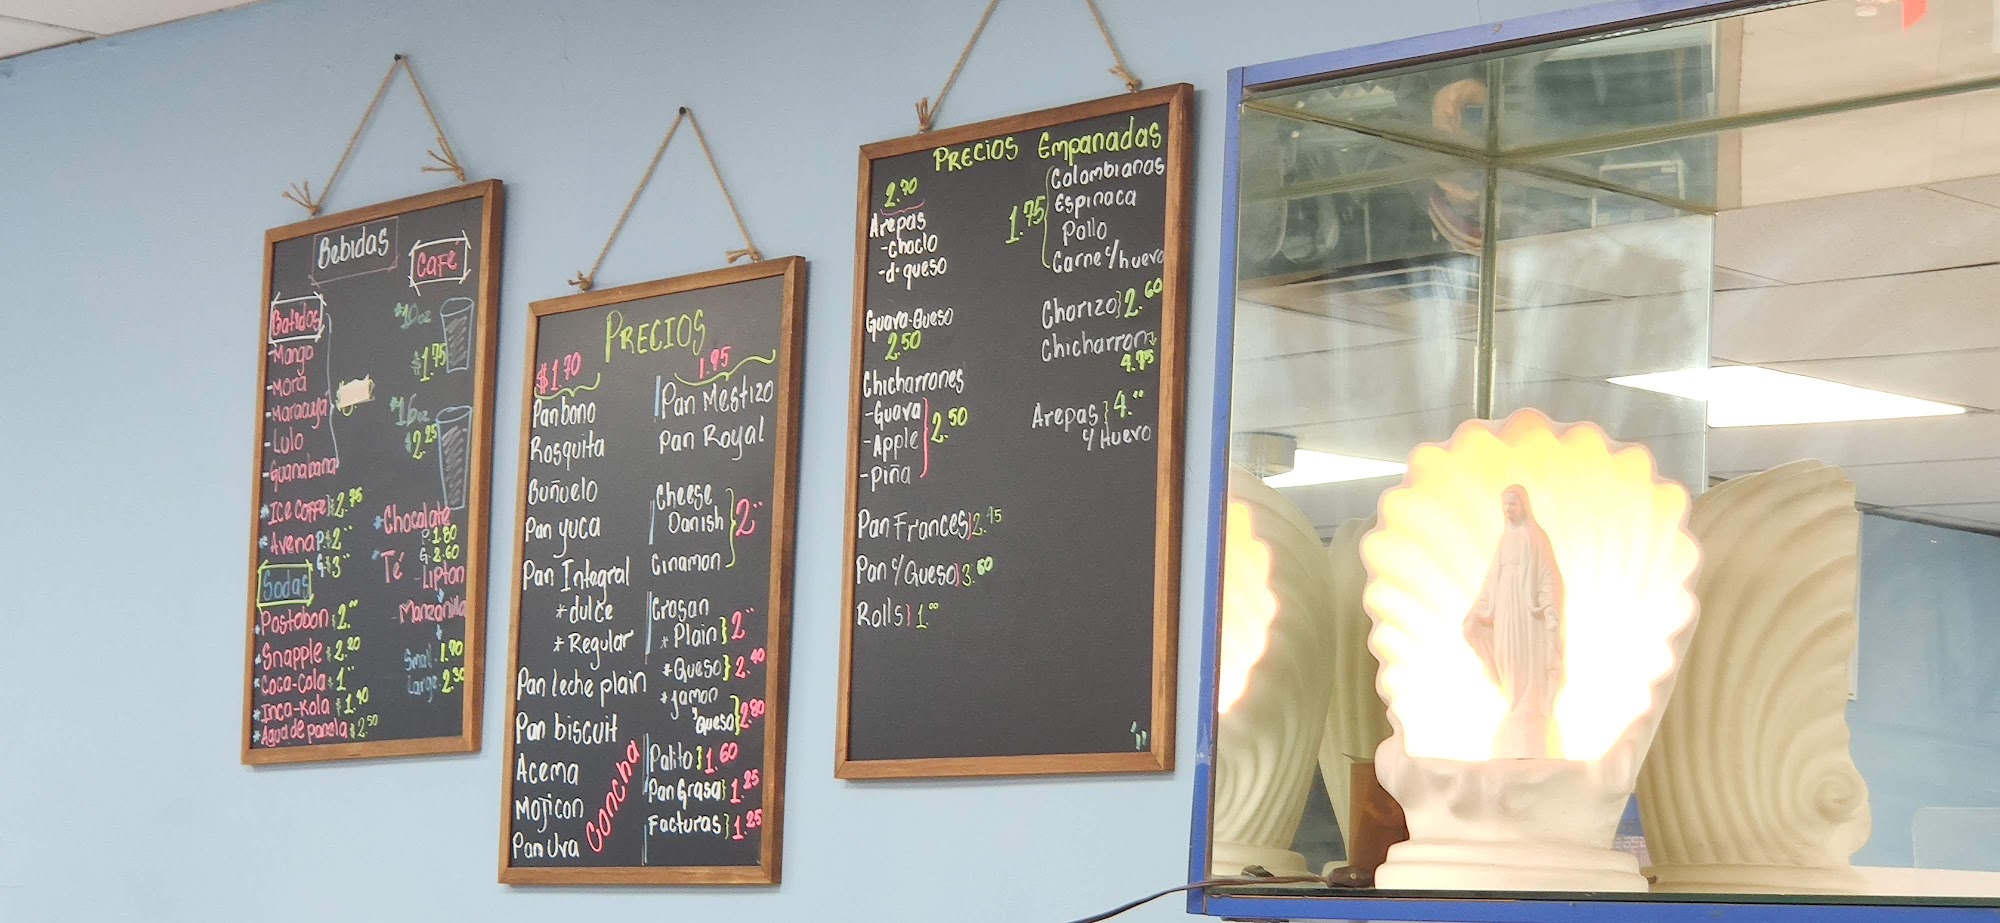 Bebidas
Café
Batidos
-Mango
-Mora
-Maracuya
-Lulo
-Guanabana
*10oz
$1.75
*16oz
$2.25
*Ice Coffe}$2.75
*Avena P.$2.00
G.$3.00
*Chocolate
P. 1.80
G. 2.60
Té -Lipton
-Manzanilla
Small. 1.90
Large. 2.30
Sodas
*Postobon $2.00
*Snapple $2.20
*Coca-cola $1.00
*Inca-Kola $1.90
*Agua de panela $2.50
PRECIOS
$1.70
Panbono
Rosquita
Buñuelo
Pan yuca
Pan Integral
*dulce
*Regular
Pan leche plain
Pan biscuit
Acema
Mojicon
Pan Uva
Concha
1.95
Pan Mestizo
Pan Royal
Cheese
Danish
Cinamon
2.00
Crosan
*Plain} 2.00
*Queso} 2.40
*Jamon
y Queso} 2.80
Palito} 1.60
Pan Grasa} 1.25
Facturas} 1.25
PRECIOS Empanadas
2.70
Arepas
-choclo
-d.queso
Guava-Queso
2.50
Chicharrones
-Guava
-Apple
-Piña
2.50
Pan Frances}2.75
Pan c/Queso}3.60
Rolls} 1.00
1.75
Colombianas
Espinaca
Pollo
Carne c/huevo
Chorizo}2.60
Chicharron}
4.75
Arepas} 4.00
c/ Huevo